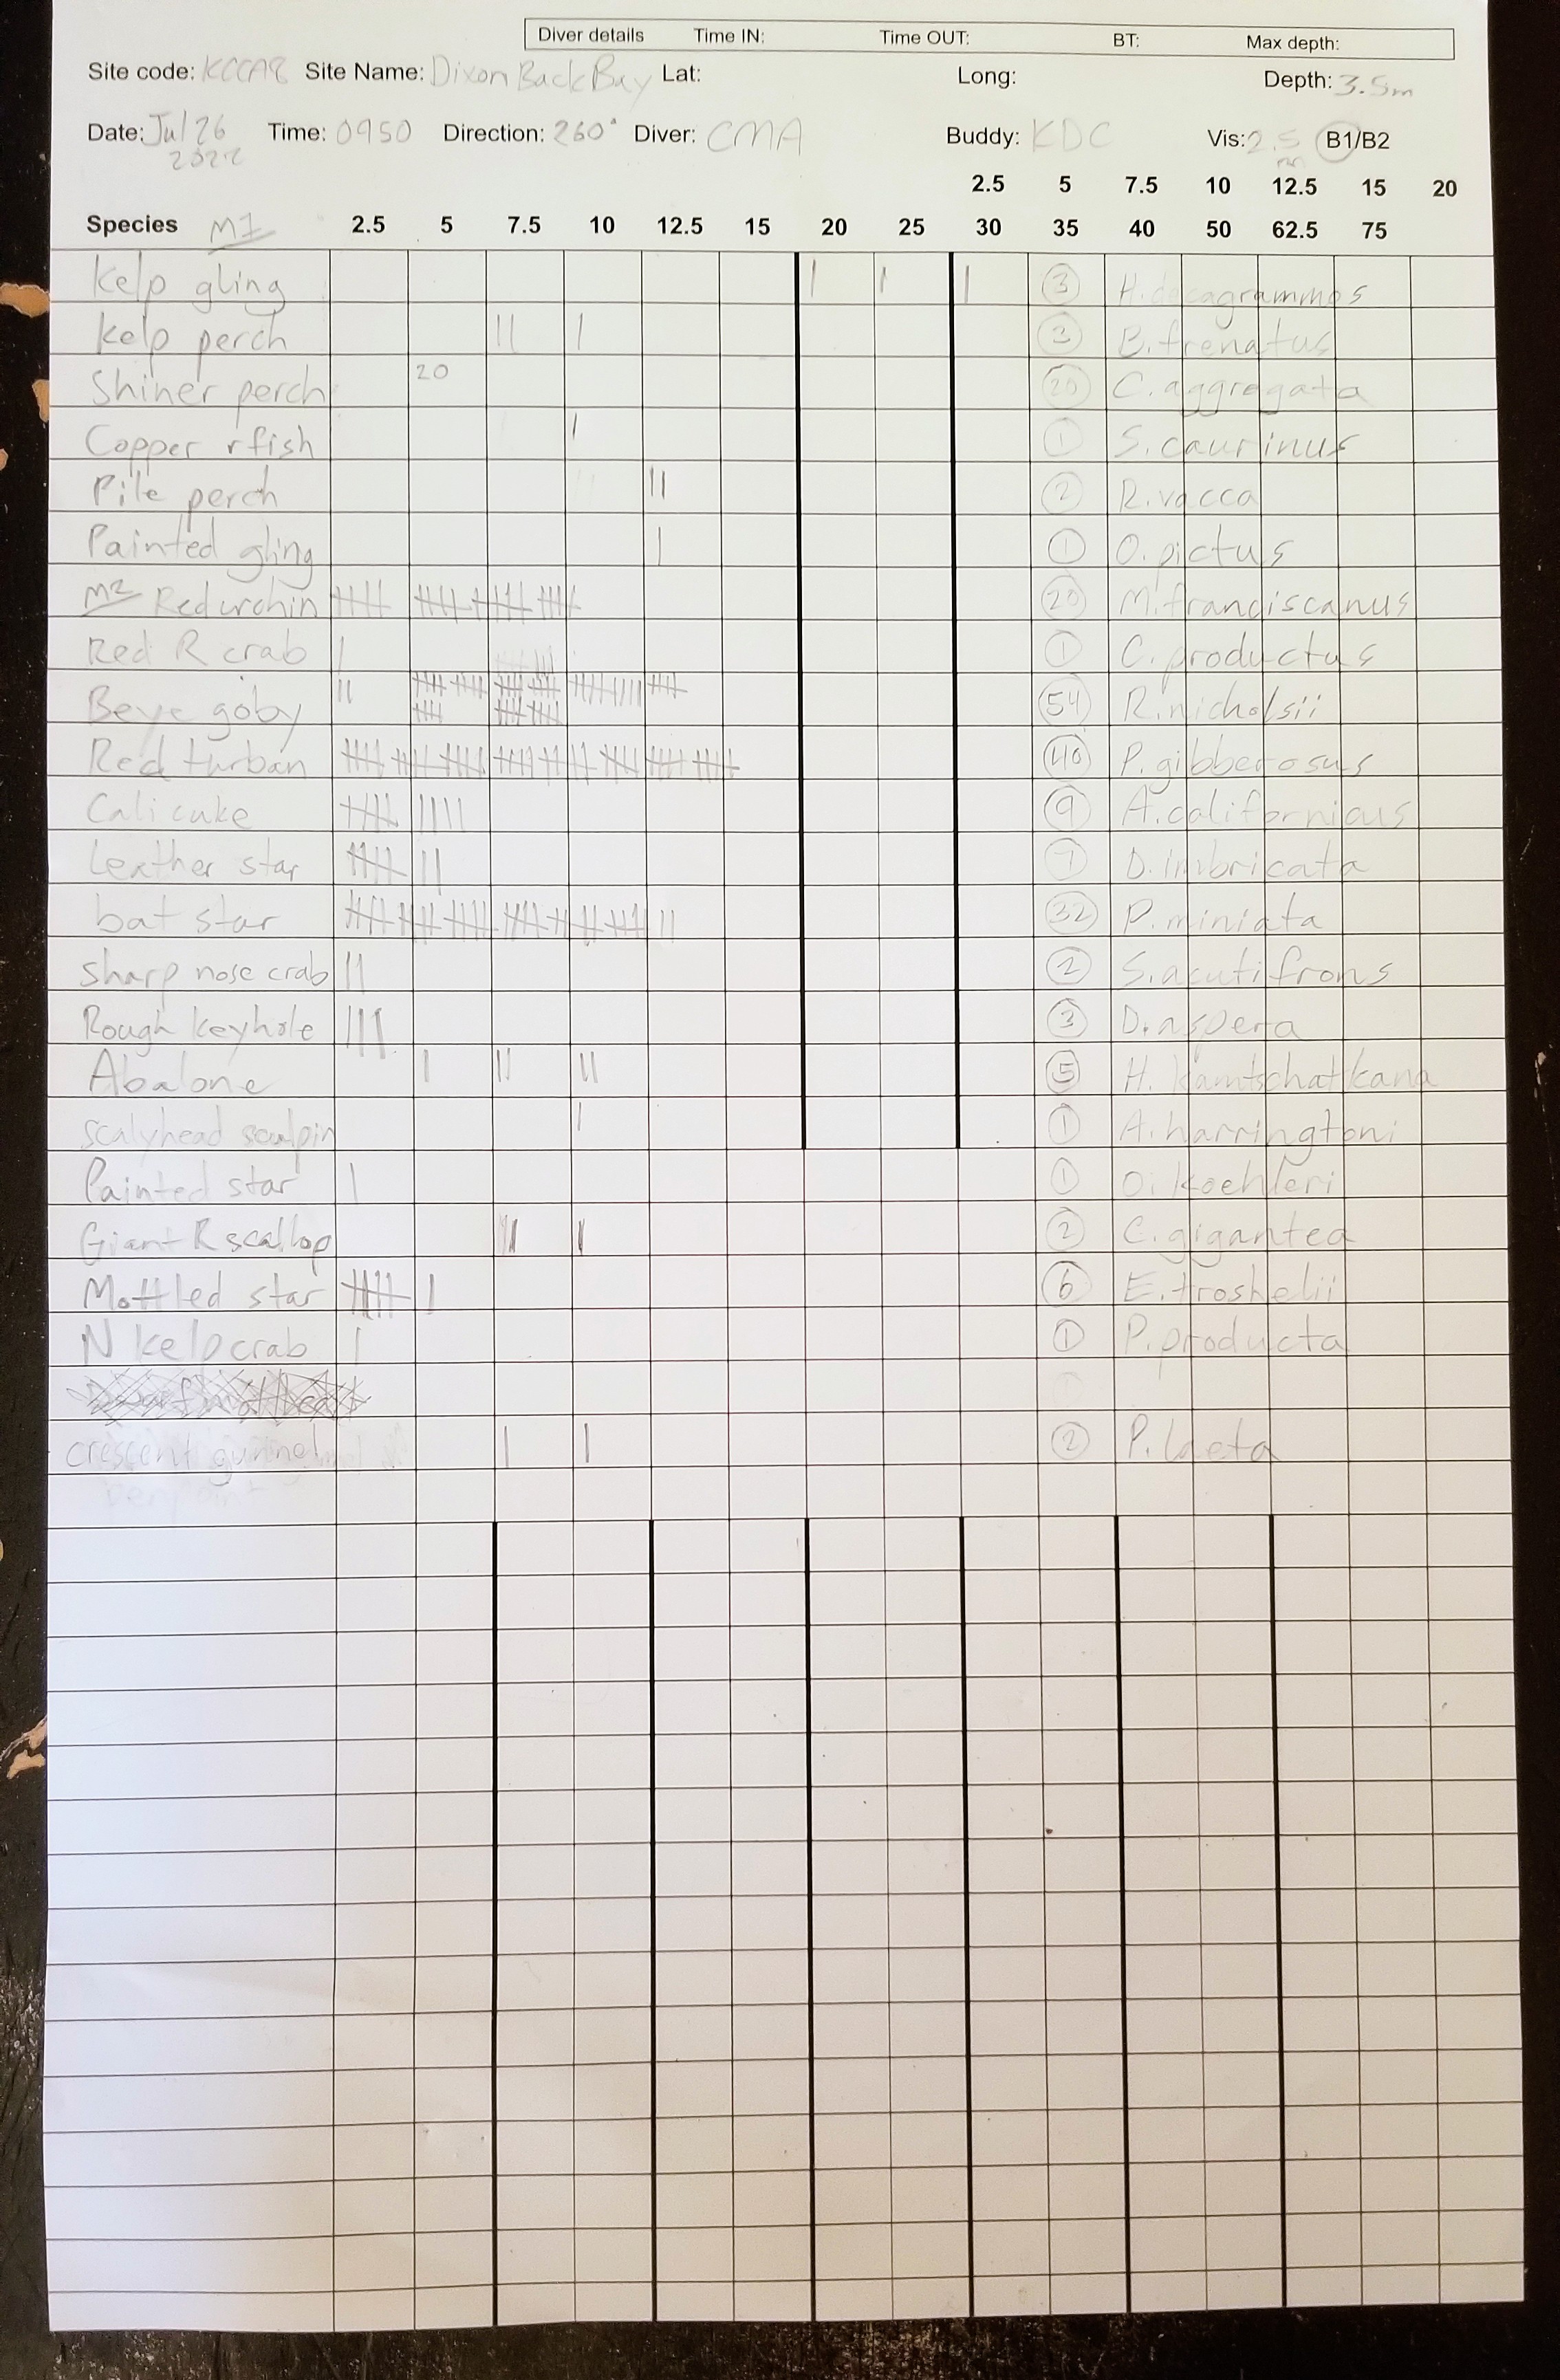 Diver details Time IN: Time OUT: BT: Max depth:
Site code: KCCA8 Site Name: Dixon Back Bay Lat: Long: Depth: 3.5m
Date: Jul 26 Time: 0950 Direction: 260° Diver: CMA Buddy: KDC Vis: 2.5 B1/B2
2022 m
2.5 5 7.5 10 12.5 15 20
Species M1 2.5 5 7.5 10 12.5 15 20 25 30 35 40 50 62.5 75
Kelp gling | | | 3 H. decagrammos
Kelp perch || | 3 B. frenatus
Shiner perch 20 20 C. aggregata
Copper rfish | 1 S. caurinus
Pile perch || 2 R. vacca
Painted gling | 1 O. pictus
M2 Red urchin 20 M. franciscanus
Red R crab | 1 C. productus
Beye goby || 54 R. nicholsii
Red turban 40 P. gibberosus
Cali cuke 9 A. californicus
Leather star 7 D. imbricata
bat star 32 P. miniata
Sharp nose crab || 2 S. acutifrons
Rough keyhole ||| 3 D. aspera
Abalone | || || 5 H. kamtschatkana
scalyhead sculpin | 1 A. harringtoni
Painted star | 1 O. koehleri
Giant R scallop 2 C. gigantea
Mottled star 6 E. troshelii
N kelp crab | 1 P. producta
crescent gunnel | | 2 P. laeta